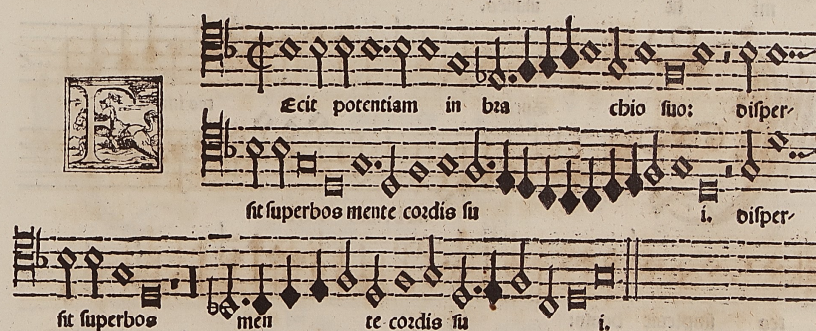 FEcit potentiam in bra chio suo: disper-
sit superbos mente cordis su i. disper-
sit superbos men te cordis su i.